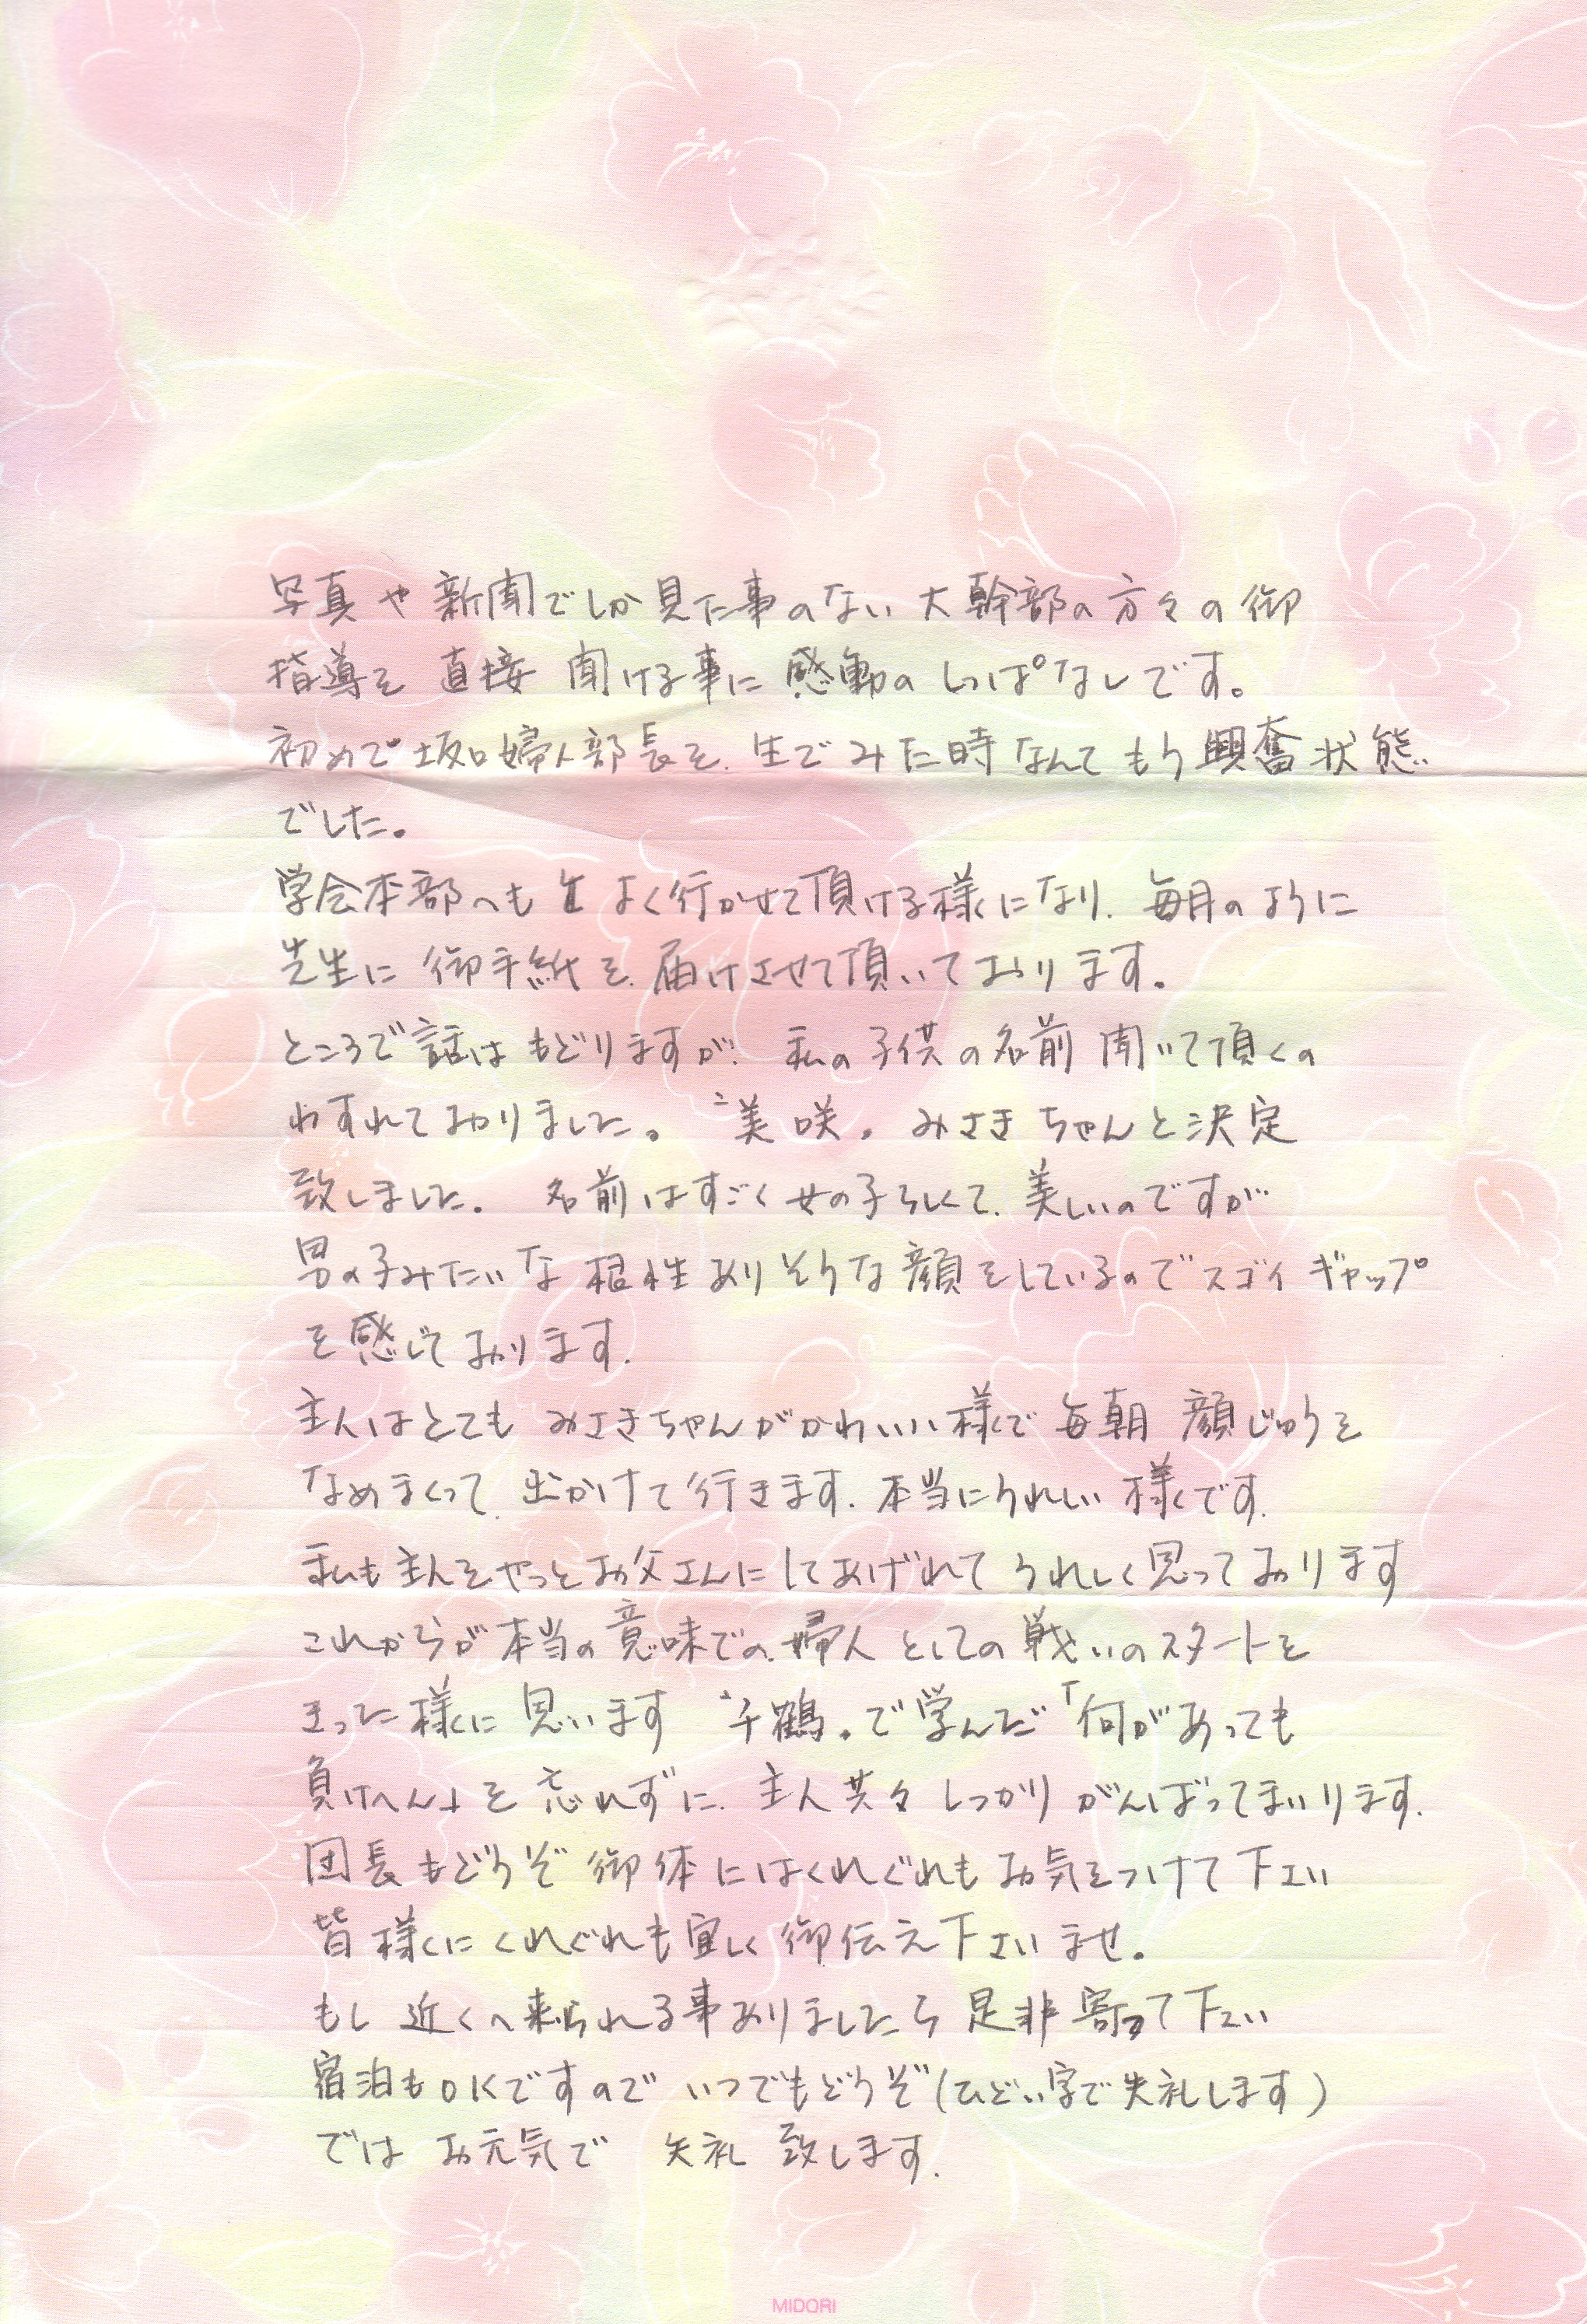 写真や新聞でしか見た事のない大幹部の方々の御
指導を直接聞ける事に感動のしっぱなしです。
初めて坂口婦人部長を、生でみた時なんてもう興奮状態
でした。
学会本部へもよく行かせて頂ける様になり、毎月のように
先生に御手紙を届けさせて頂いております。
ところで話はもどりますが、私の子供の名前聞いて頂くの
わすれておりました。“美咲”みさきちゃんと決定
致しました。名前はすごく女の子らしくて、美しいのですが
男の子みたいな根性ありそうな顔をしているのでスゴイギャップ
を感じております。
主人はとてもみさきちゃんがかわいい様で毎朝顔じゅうを
なめまくって、出かけて行きます。本当にうれしい様です。
私も主人をやっとお父さんにしてあげれてうれしく思っております
これからが本当の意味での婦人としての戦いのスタートを
きった様に思います“千鶴”で学んだ「何があっても
負けへん」を忘れずに、主人共々しっかりがんばってまいります。
団長もどうぞ御体にはくれぐれもお気をつけて下さい
皆様にくれぐれも宜しく御伝え下さいませ。
もし近くへ来られる事ありましたら是非寄って下さい
宿泊もOKですのでいつでもどうぞ(ひどい字で失礼します)
ではお元気で 失礼致します。
MIDORI